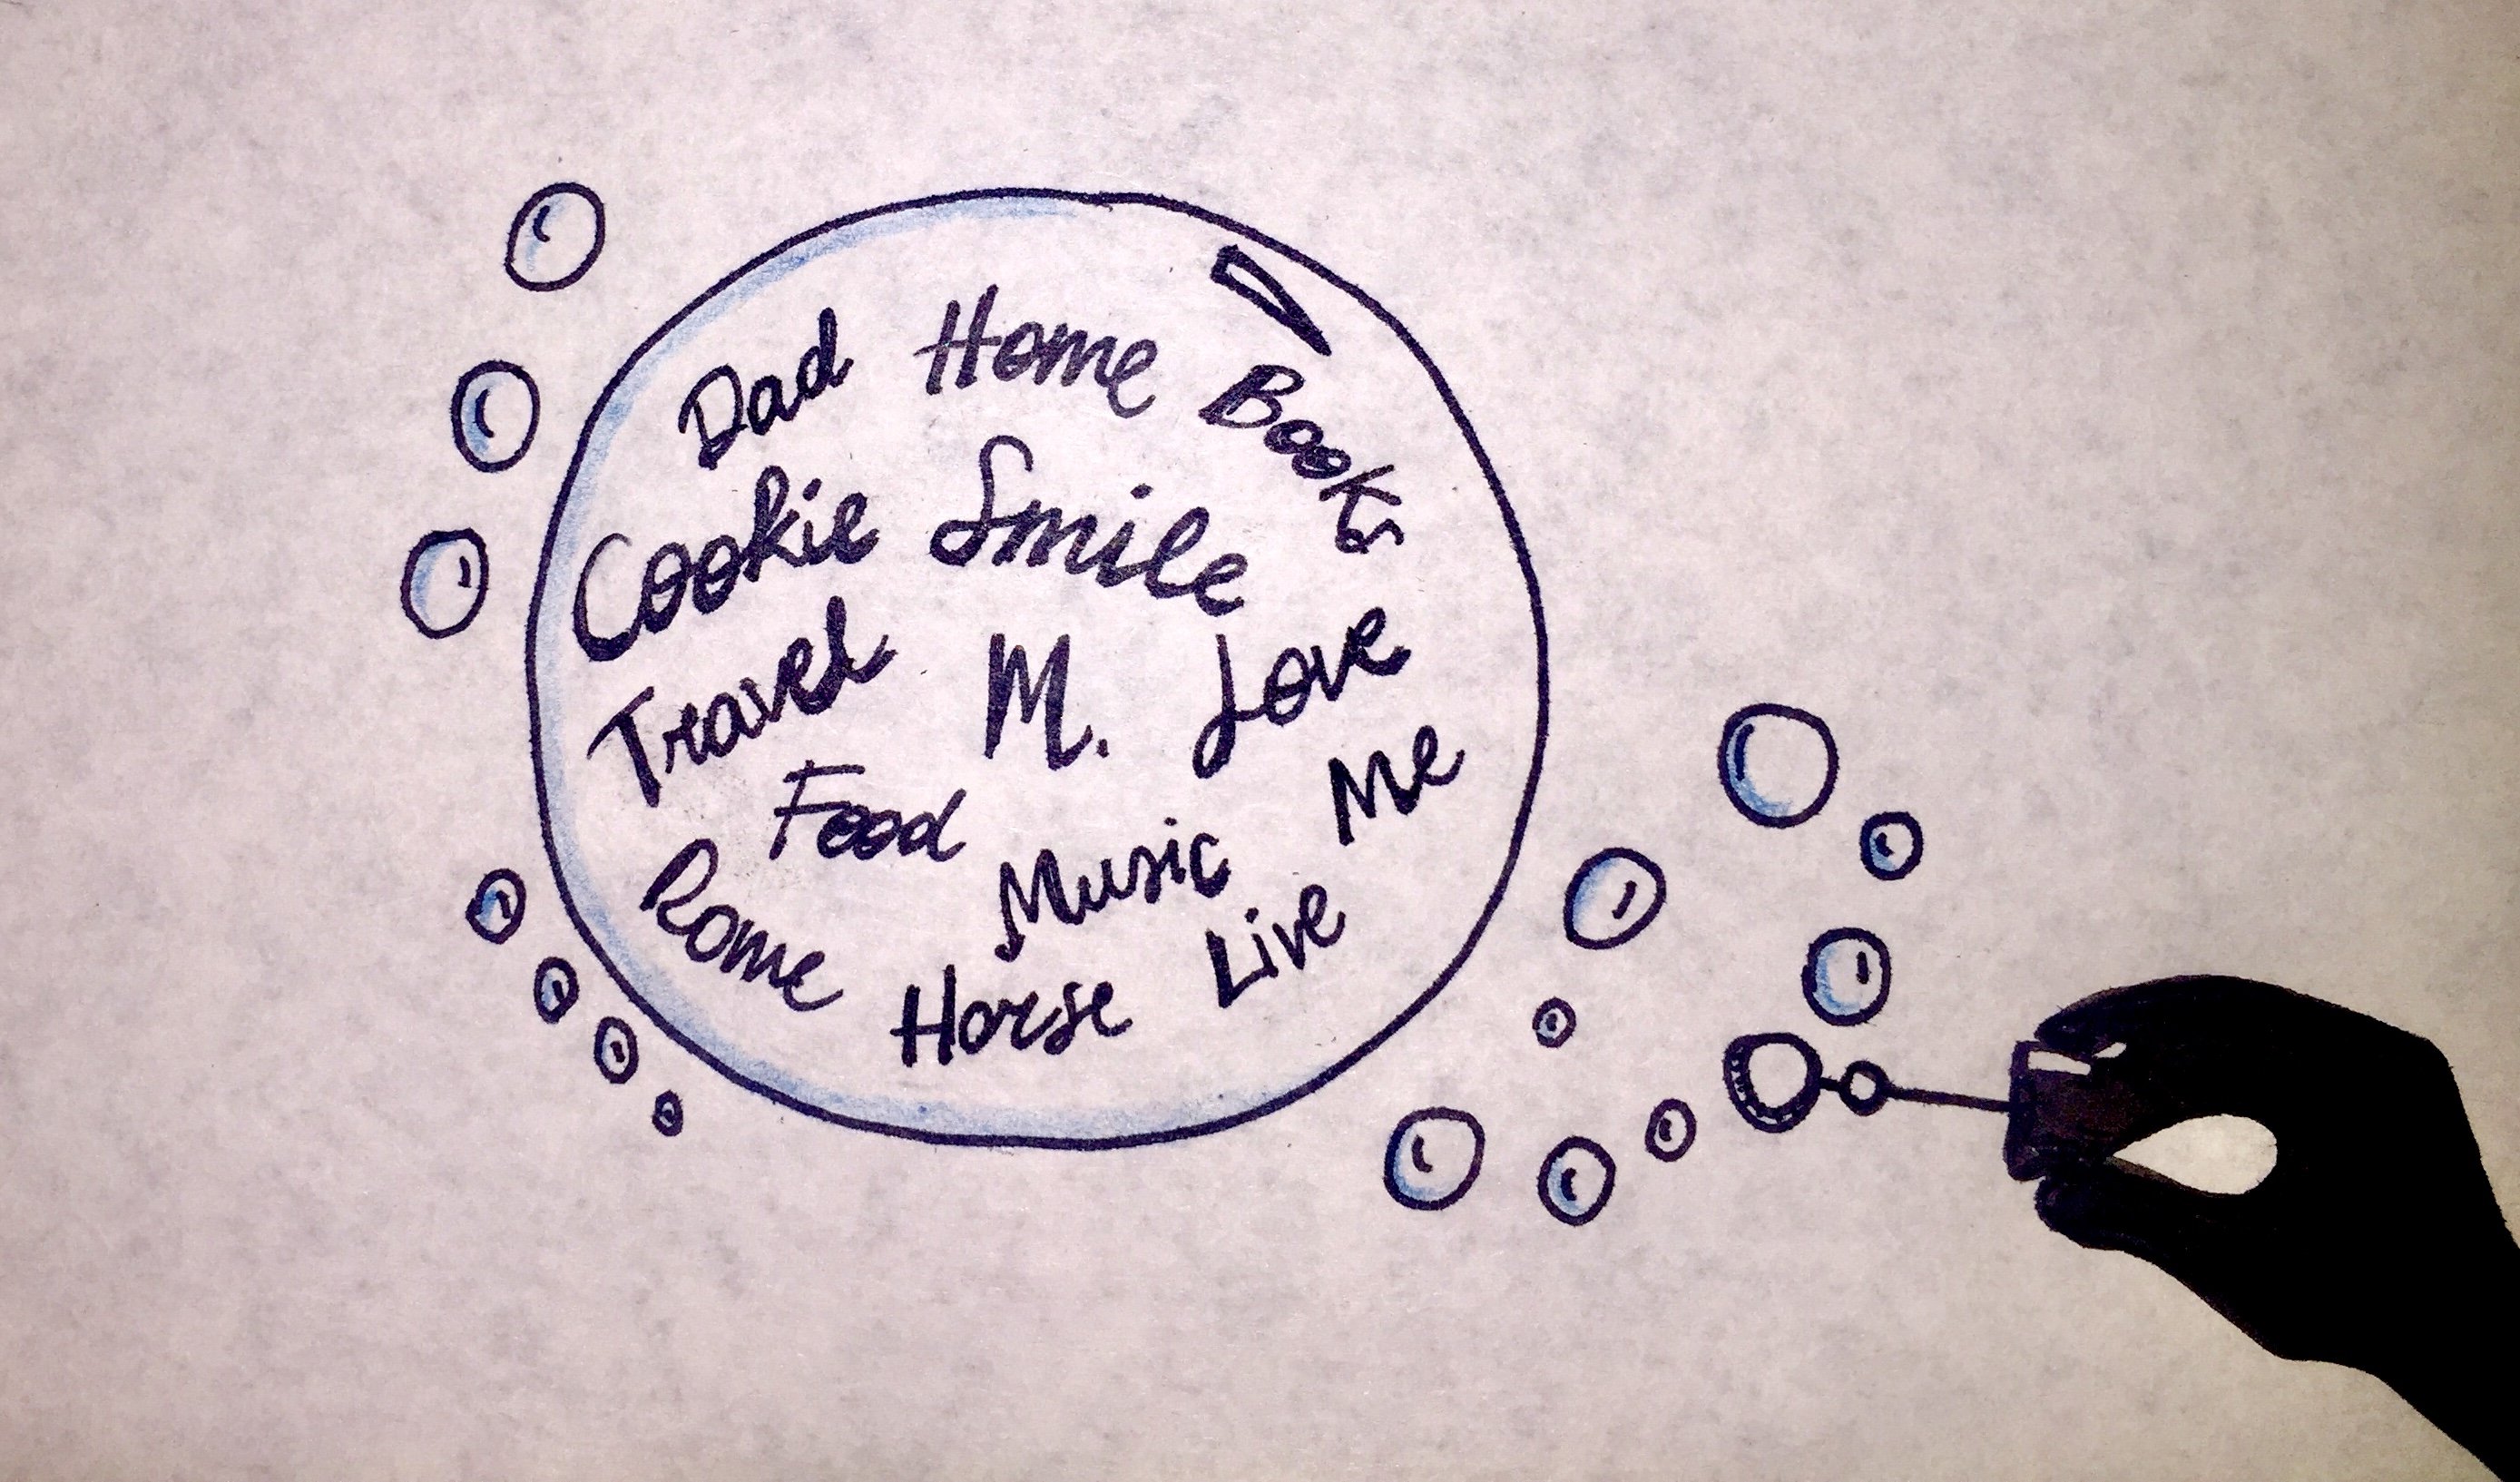 Dad Home Books
Cookie Smile
Travel M. Love
Food Me
Rome Music
Horse Live